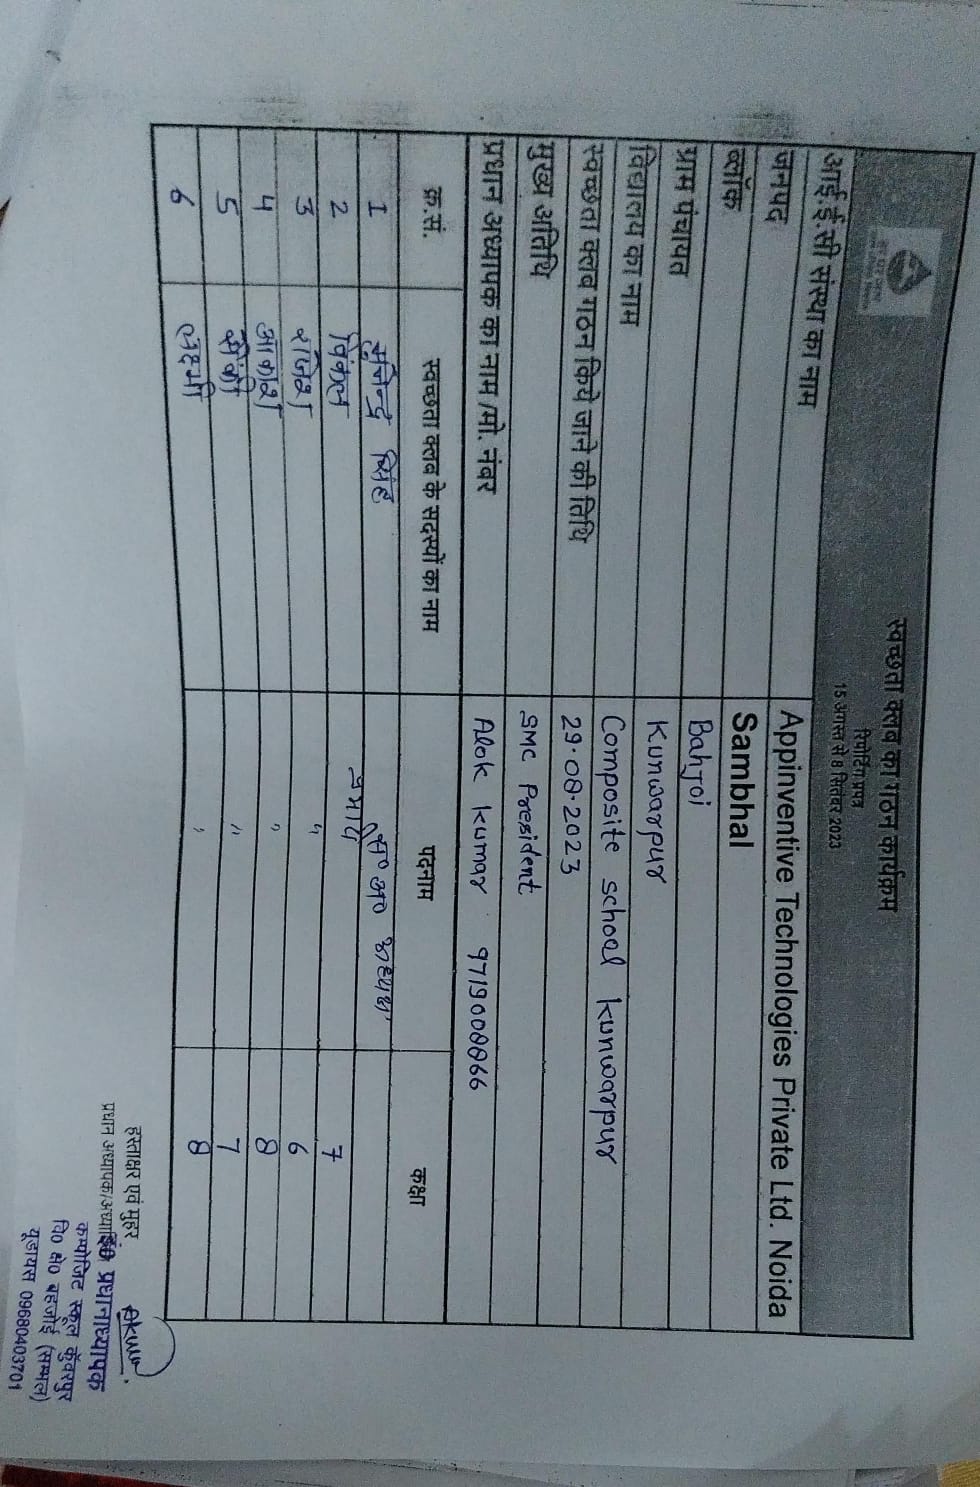 स्वच्छता क्लब का गठन कार्यक्रम
रिपोर्टिंग प्रपत्र
15 अगस्त से 8 सितंबर 2023
आई.ई.सी संस्था का नाम Appinventive Technologies Private Ltd. Noida
जनपद Sambhal
ब्लॉक Bahjoi
ग्राम पंचायत Kunwarpur
विद्यालय का नाम Composite school kunwarpur
स्वच्छता क्लब गठन किये जाने की तिथि 29.08.2023
मुख्य अतिथि SMC President
प्रधान अध्यापक का नाम /मो. नंबर Alok kumar 9719008866
क्र.सं. स्वच्छता क्लब के सदस्यों का नाम पदनाम कक्षा
1 सिंह स० अ०
2 7
3 राजेश " 6
4 आकाश " 8
5 " 7
6 लक्ष्मी " 8
हस्ताक्षर एवं मुहर
प्रधान अध्यापक/
इं० प्रधानाध्यापक
कम्पोजिट स्कूल कुँवरपुर
वि० क्षे० बहजोई (सम्भल)
यूडायस 09680403701